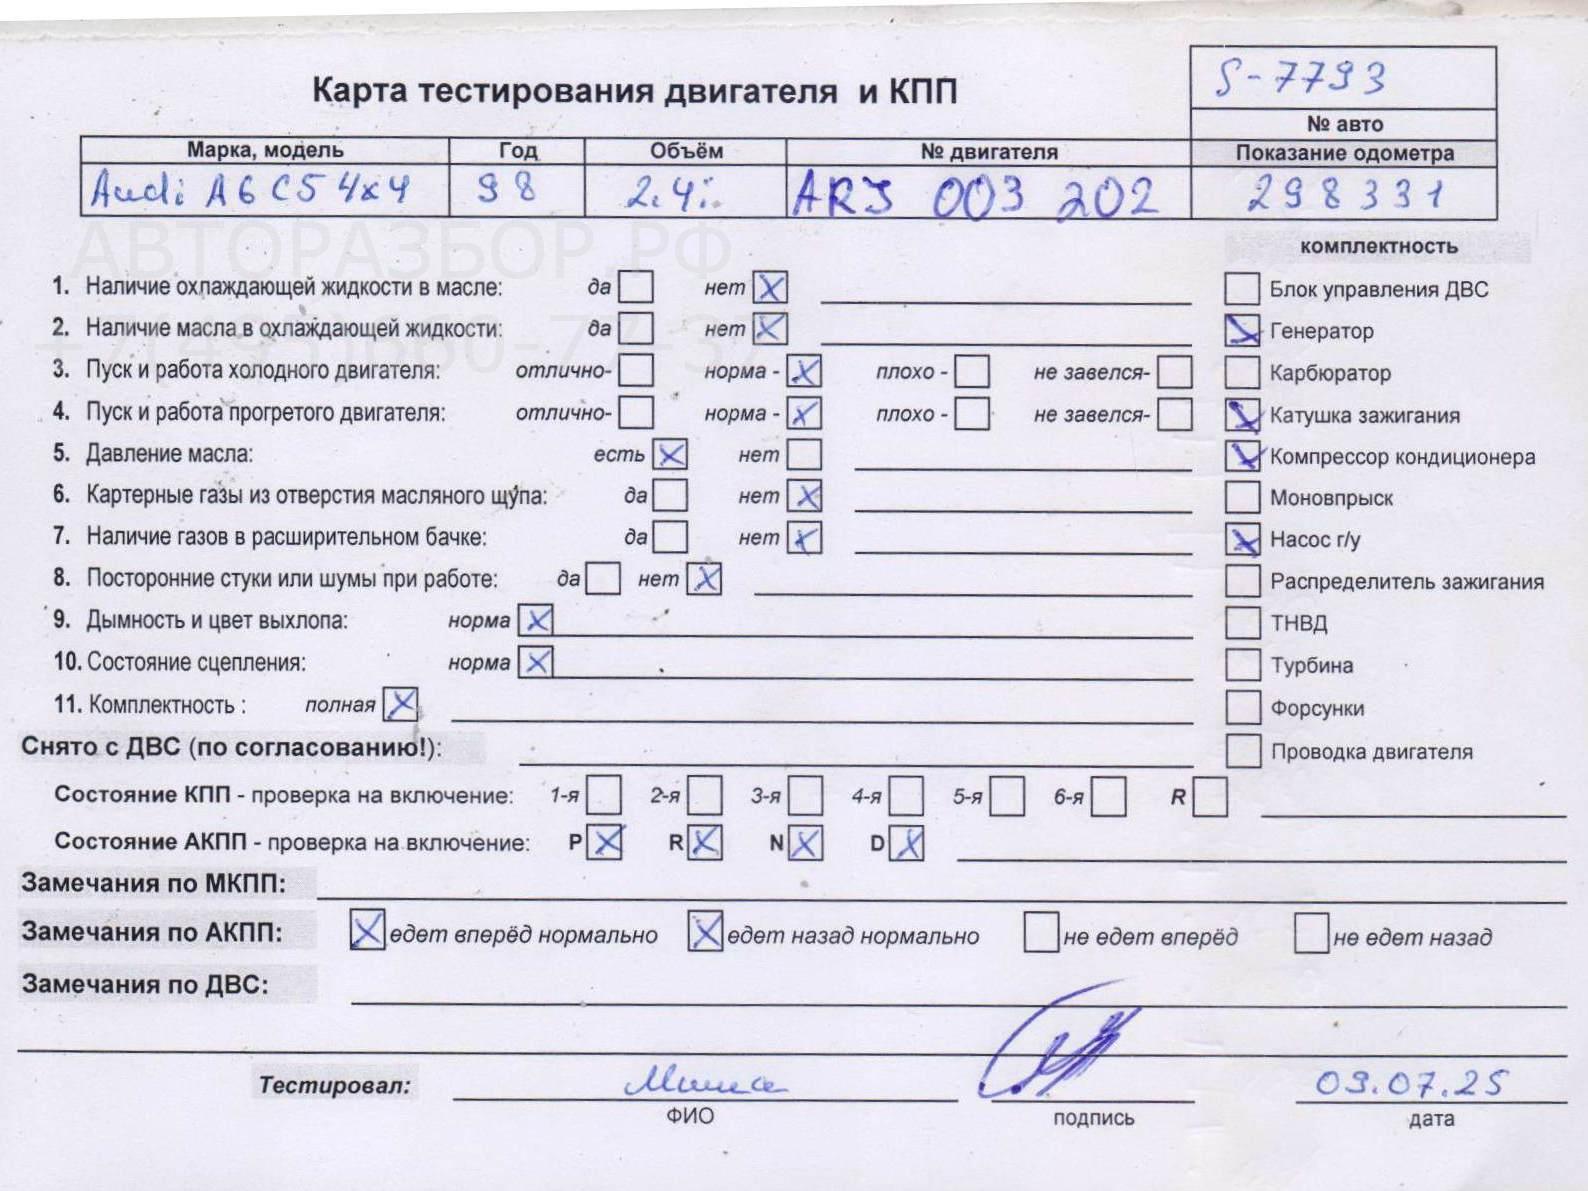 S-7793
Карта тестирования двигателя и КПП
№ авто
Марка, модель Год Объём № двигателя Показание одометра
Audi A6 C5 4x4 98 2.4i ARJ 003 202 298331
АВТОРАЗБОР.РФ
комплектность
1. Наличие охлаждающей жидкости в масле: да нет Блок управления ДВС
2. Наличие масла в охлаждающей жидкости: да нет Генератор
3. Пуск и работа холодного двигателя: отлично- норма - плохо - не завелся- Карбюратор
4. Пуск и работа прогретого двигателя: отлично- норма - плохо - не завелся- Катушка зажигания
5. Давление масла: есть нет Компрессор кондиционера
6. Картерные газы из отверстия масляного щупа: да нет Моновпрыск
7. Наличие газов в расширительном бачке: да нет Насос г/у
8. Посторонние стуки или шумы при работе: да нет Распределитель зажигания
9. Дымность и цвет выхлопа: норма ТНВД
10. Состояние сцепления: норма Турбина
11. Комплектность : полная Форсунки
Снято с ДВС (по согласованию!): Проводка двигателя
Состояние КПП - проверка на включение: 1-я 2-я 3-я 4-я 5-я 6-я R
Состояние АКПП - проверка на включение: P R N D
Замечания по МКПП:
Замечания по АКПП: едет вперёд нормально едет назад нормально не едет вперёд не едет назад
Замечания по ДВС:
Тестировал: 09.07.25
ФИО подпись дата